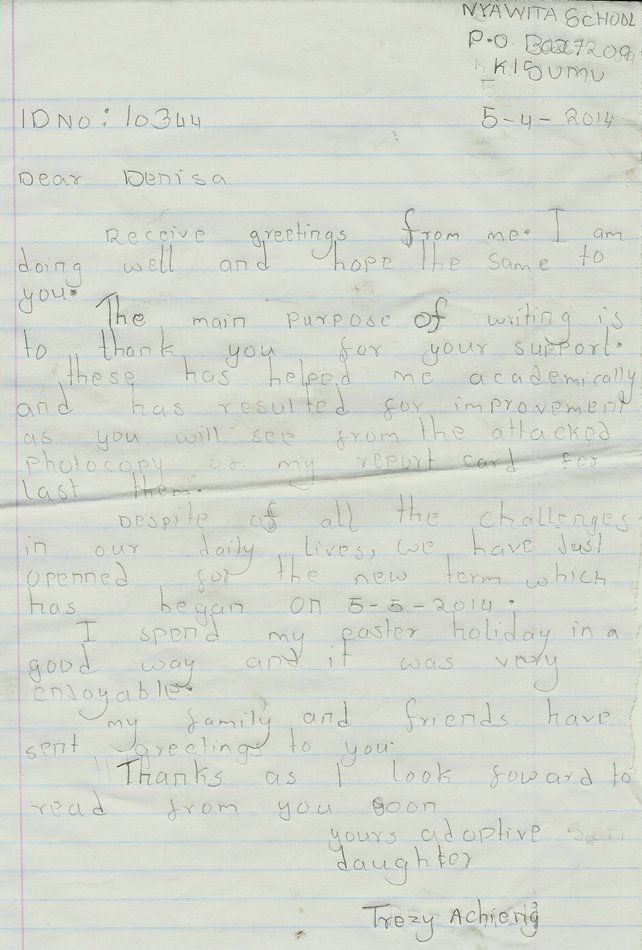 NYAWITA SCHOOL
P.O. Box 7209
KISUMU
IDNO: 10344
5-4-2014
Dear Denisa
Receive greetings from me. I am
doing well and hope the same to
you.
The main purpose of writing is
to thank you for your support.
these has helped me academically
and has resulted for improvement
as you will see from the attacked
photocopy of my report card for
last them.
Despite of all the challenges
in our daily lives, we have Just
openned for the new term which
has began on 5-5-2014.
I spend my easter holiday in a
good way and it was very
enjoyable.
my family and friends have
sent greetings to you.
Thanks as I look foward to
read from you soon
yours adoptive son
daughter
Trezy Achieng